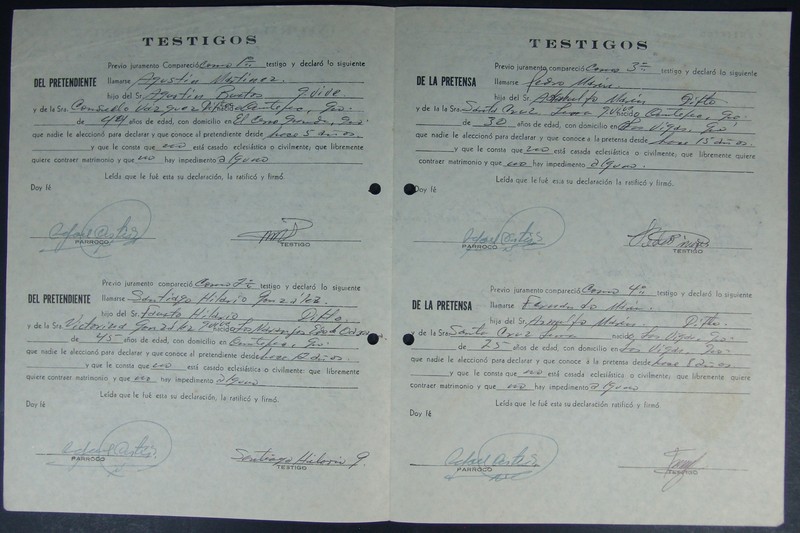 TESTIGOS
Previo juramento Compareció Como 1er testigo y declaró lo siguiente
DEL PRETENDIENTE
llamarse Agustin Martinez.
hijo del Sr. Agustin Bustos q.vive
y de la Sra. Consuelo Vazquez
de 44 años de edad, con domicilio en El
que nadie le aleccionó para declarar y que conoce al pretendiente desde hace 5 años.
y que le consta que no está casado eclesiástica o civilmente, que libremente
quiere contraer matrimonio y que no hay impedimento alguno
Leída que le fué esta su declaración, la ratificó y firmó.
Doy fé
PARROCO
TESTIGO
DEL PRETENDIENTE
Previo juramento compareció Como 2o testigo y declaró lo siguiente
llamarse Santiago Hilario Gonzalez.
hijo del Sr. Fausto Hilario Difto.
y de la Sra. Victoriana Gonzalez
de 45 años de edad, con domicilio en
que nadie le aleccionó para declarar y que conoce al pretendiente desde hace años.
y que le consta que no está casado eclesiástica o civilmente: que libremente
quiere contraer matrimonio y que no hay impedimento alguno
Leída que le fué esta su declaración, la ratificó y firmó.
Doy fé
PARROCO
Santiago Hilario G.
TESTIGO
TESTIGOS
Previo juramento compareció Como 3er testigo y declaró lo siguiente
DE LA PRETENSA
llamarse Pedro Marin
hijo del Sr. Marin Difto
y de la Sra. Santa Cruz
de 30 años de edad, con domicilio en Las Vigas, Gro.
que nadie le aleccionó para declarar y que conoce a la pretensa desde hace 15 años.
y que le consta que no está casada eclesiástica o civilmente; que libremente quiere
contraer matrimonio y que no hay impedimento alguno
Leída que le fué esta su declaración, la ratificó y firmó.
Doy fé
PARROCO
TESTIGO
Previo juramento compareció Como 4o testigo y declaró lo siguiente
DE LA PRETENSA
llamarse Fernando Marin.
hijo del Sr. Marin. Difto.
y de la Sra. Santa Cruz nacido Las Vigas, Gro.
de 25 años de edad, con domicilio en Las Vigas, Gro
que nadie le aleccionó para declarar y que conoce a la pretensa desde hace 8 años.
y que le consta que no está casada eclesiástica o civilmente; que libremente quiere
contraer matrimonio y que no hay impedimento alguno
Leída que le fué esta su declaración, la ratificó y firmó.
Doy fé
PARROCO
TESTIGO